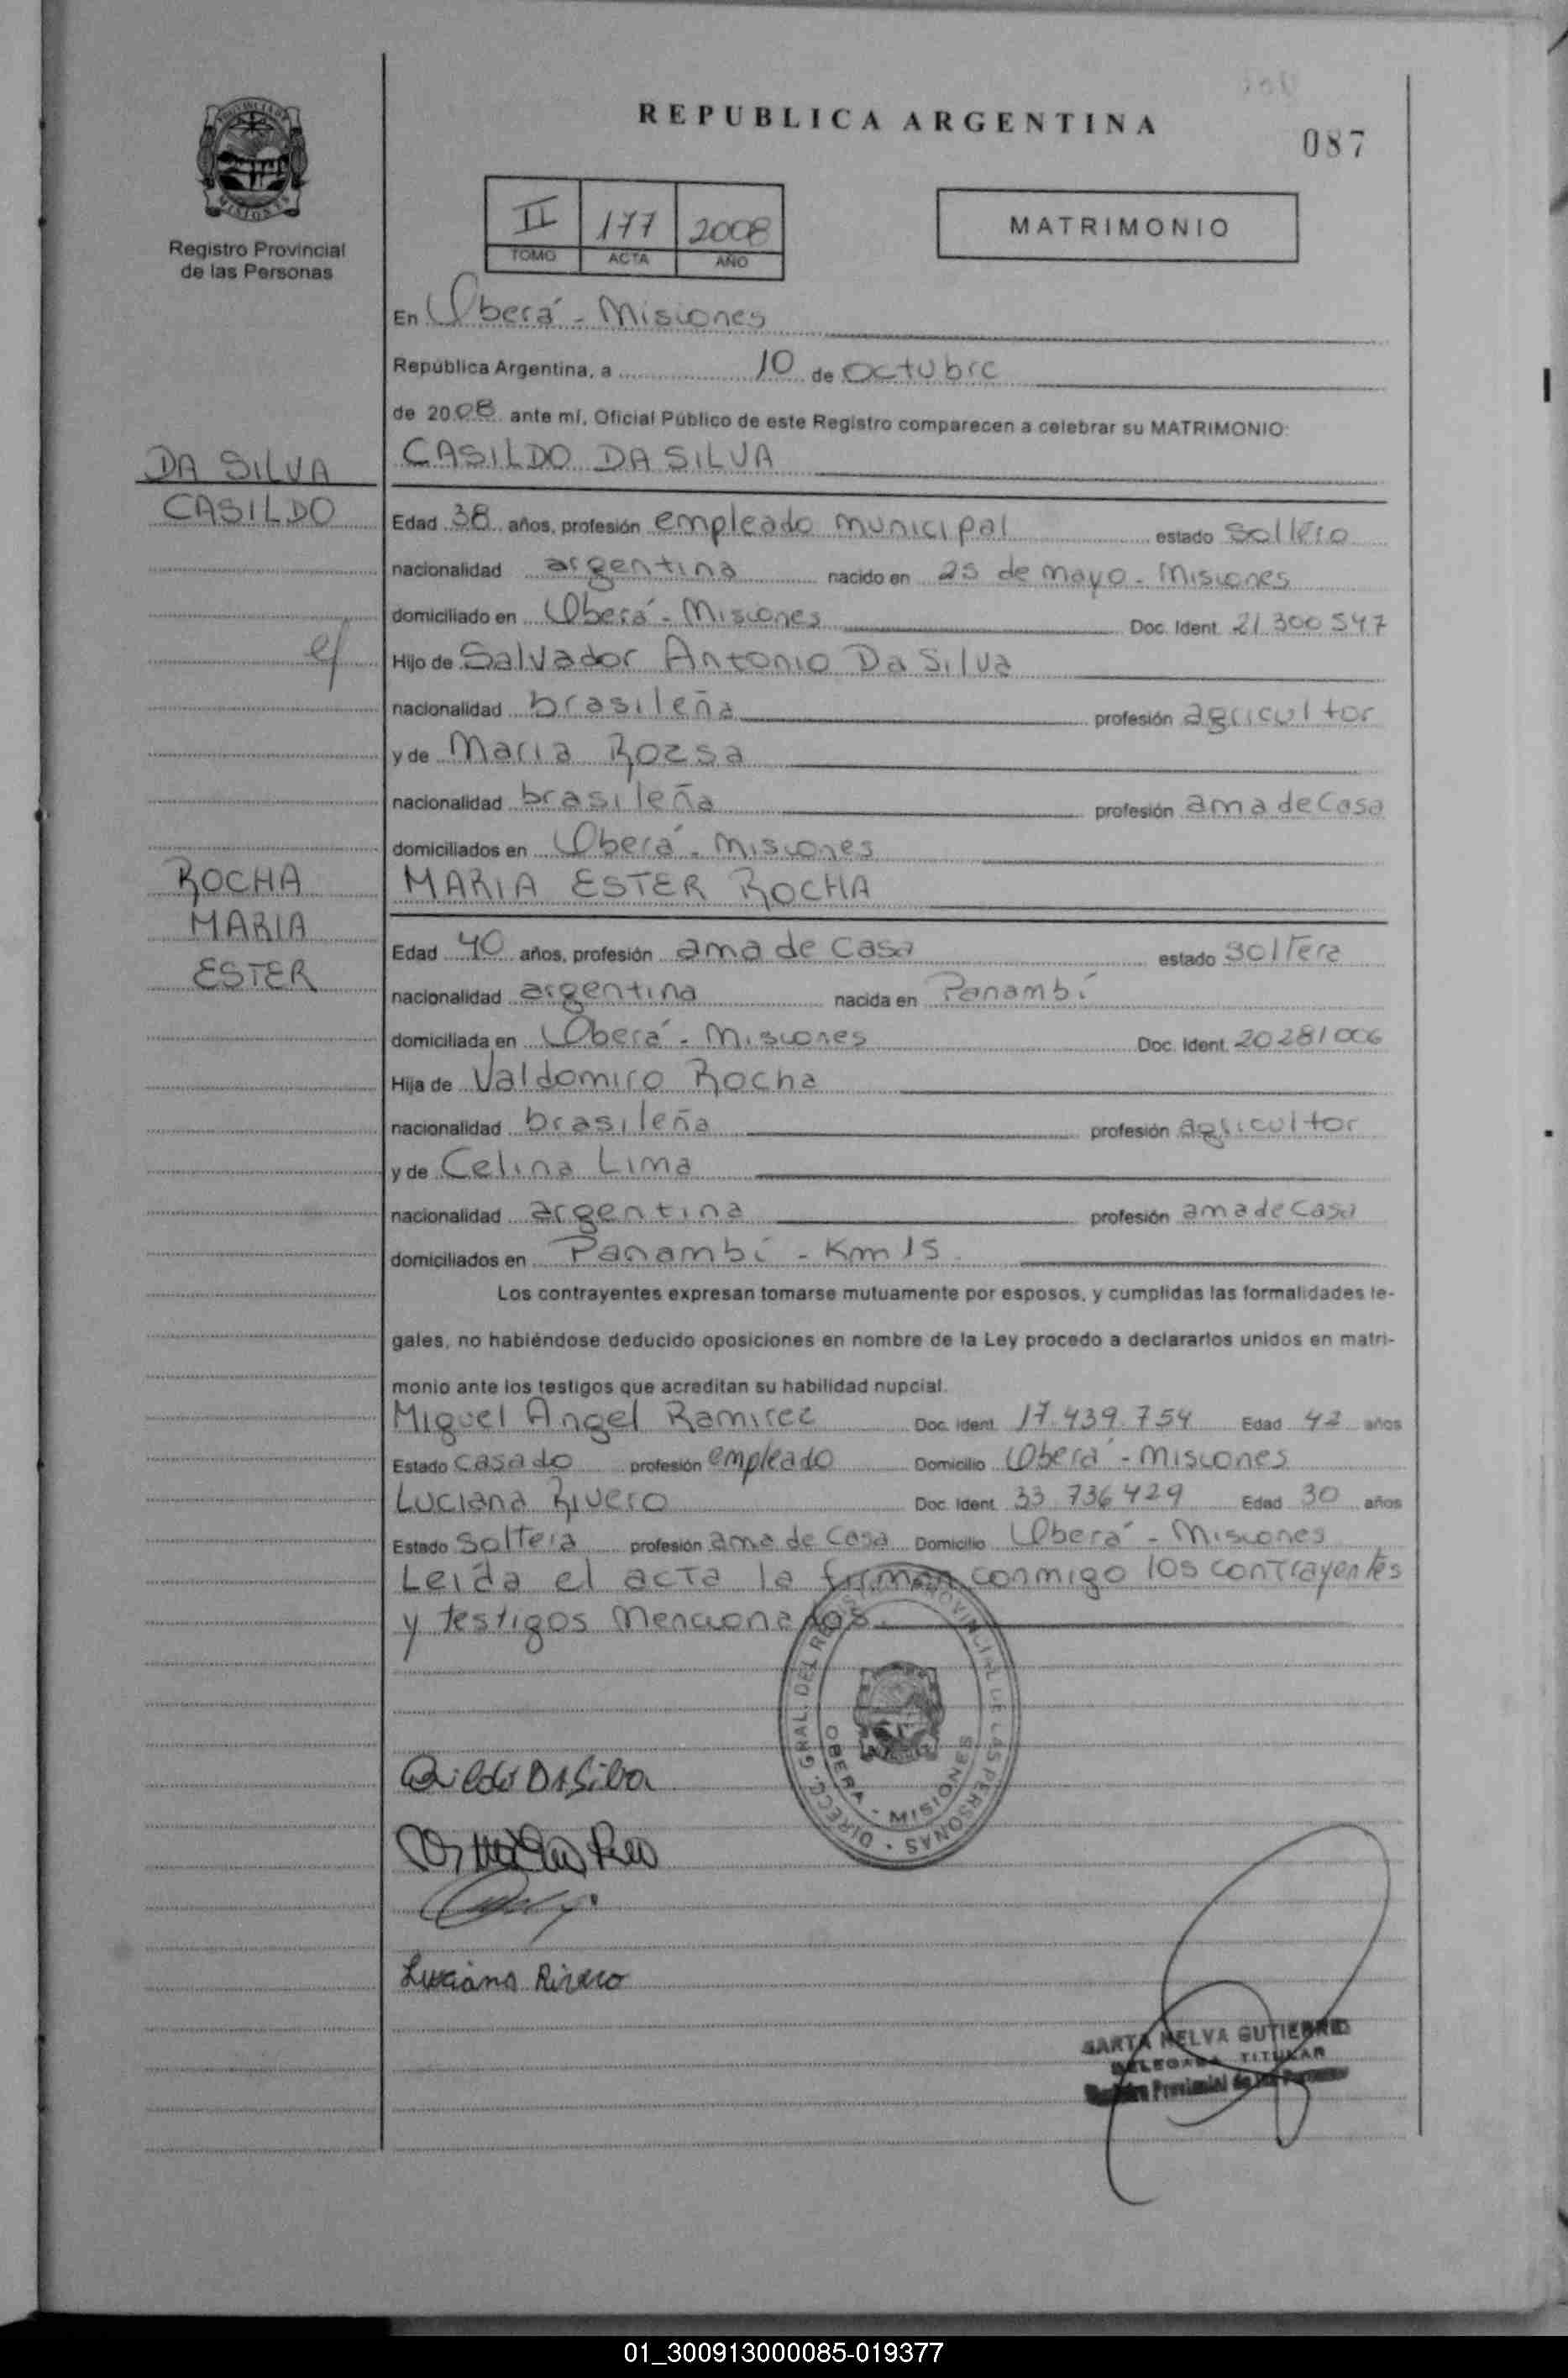 PROVINCIA DE
MISIONES
Registro Provincial
de las Personas
REPUBLICA ARGENTINA
087
II 177 2008
TOMO ACTA AÑO
MATRIMONIO
En Oberá - Misiones
República Argentina, a 10 de octubre
de 2008 ante mí, Oficial Público de este Registro comparecen a celebrar su MATRIMONIO:
DA SILVA
CASILDO
CASILDO DA SILVA
Edad 38 años, profesión empleado municipal estado soltero
nacionalidad argentina nacido en 25 de mayo - Misiones
domiciliado en Oberá - Misiones Doc. Ident. 21 300 547
Hijo de Salvador Antonio Da Silva
nacionalidad brasileña profesión agricultor
y de Maria
nacionalidad brasileña profesión ama de Casa
domiciliados en Oberá - Misiones
ROCHA
MARIA
ESTER
MARIA ESTER ROCHA
Edad 40 años, profesión ama de casa estado soltera
nacionalidad argentina nacida en Panambí
domiciliada en Oberá - Misiones Doc. Ident. 20281006
Hija de Valdomiro Rocha
nacionalidad brasileña profesión agricultor
y de Celina Lima
nacionalidad argentina profesión ama de casa
domiciliados en Panambí - Km 15
Los contrayentes expresan tomarse mutuamente por esposos, y cumplidas las formalidades le-
gales, no habiéndose deducido oposiciones en nombre de la Ley procedo a declararlos unidos en matri-
monio ante los testigos que acreditan su habilidad nupcial.
Miguel Angel Ramirez Doc. Ident. 17.439.754 Edad 42 años
Estado casado profesión empleado Domicilio Oberá - Misiones
Luciana Rivero Doc. Ident. 33 736 429 Edad 30 años
Estado soltera profesión ama de casa Domicilio Oberá - Misiones
Leida el acta la firman conmigo los contrayentes
y testigos mencionados.
DIRECC. GRAL. DEL REGISTRO PROVINCIAL DE LAS PERSONAS
OBERA - MISIONES
Da Silva
Luciana Rivero
NELVA GUTIERREZ
DELEGADA TITULAR
Registro Provincial de las Personas
01_300913000085-019377